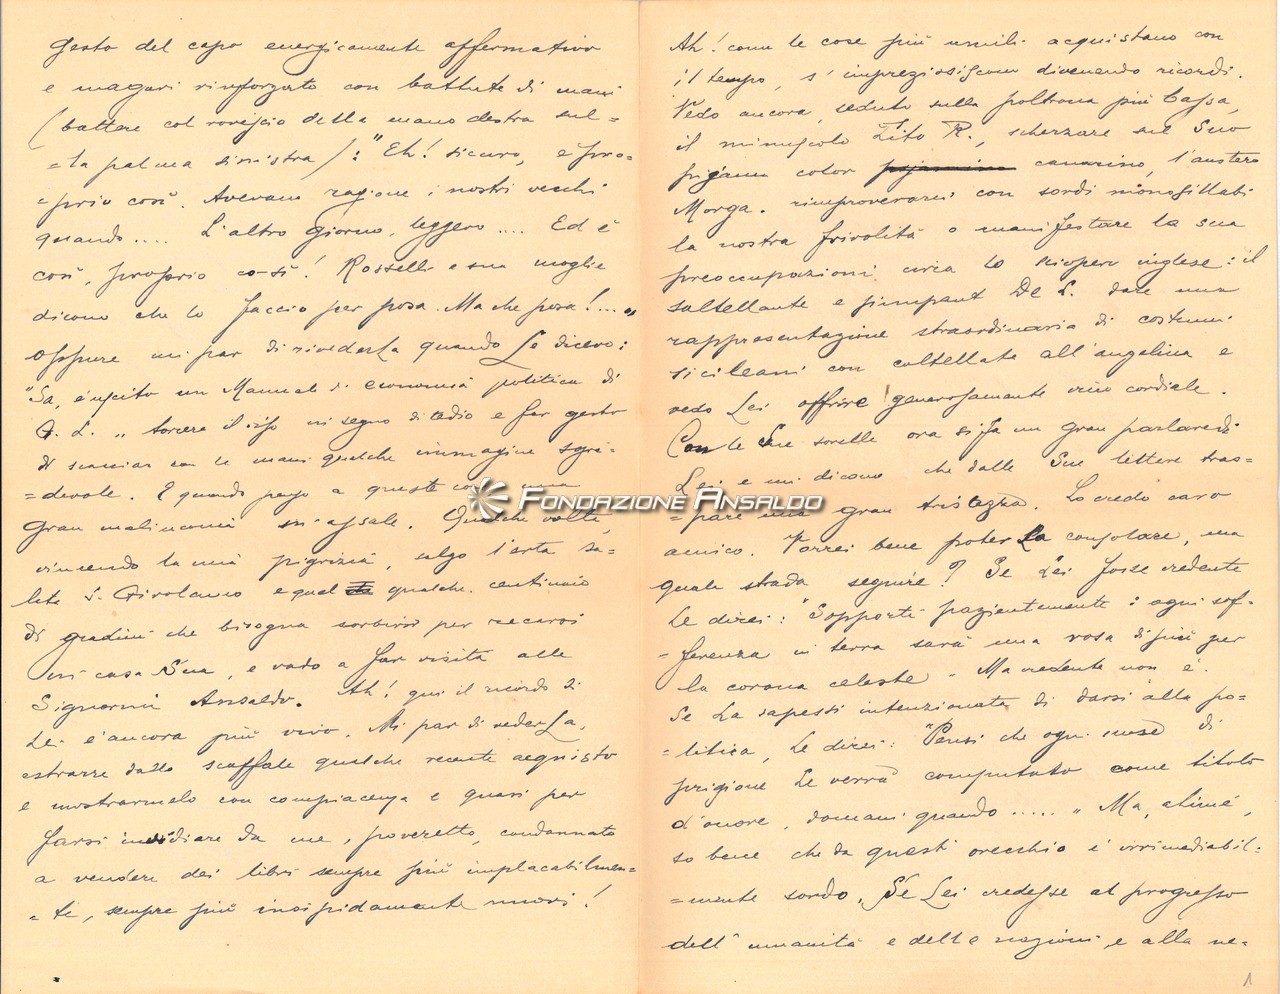 gesto del capo energicamente affermativo
e magari rinforzato con battute di mani
(battere col rovescio della mano destra sul=
=la palma sinistra): "Eh! sicuro, è pro=
=prio così. Avevano ragione i nostri vecchi
quando.... L'altro giorno, leggevo.... Ed è
così, proprio co-sì! Rosselli e sua moglie
dicono che lo faccio per posa. Ma che posa!...."
oppure mi par di rivederLa quando Le dicevo:
"Sa, è uscito un Manuale di economia politica di
G. L." torcere il viso in segno di tedio e far gesto
di scacciar con le mani qualche immagine sgra=
=devole. E quando penso a queste cose una
gran malinconia m'assale. Qualche volta,
vincendo la mia pigrizia, salgo l'erta sa=
lita S. Girolamo e quel qualche centinaio
di gradini che bisogna sorbirsi per recarsi
in casa Sua, e vado a far visita alle
Signorine Ansaldo. Ah! qui il ricordo di
Lei è ancora più vivo. Mi par di vederLa,
estrarre dallo scaffale qualche recente acquisto
e mostrarmelo con compiacenza e quasi per
farsi invidiare da me, poveretto, condannato
a vendere dei libri sempre più implacabilmen=
=te, sempre più insipidamente nuovi!
Ah! come le cose più umili acquistano con
il tempo, s'impreziosiscono divenendo ricordi.
Vedo ancora, seduto sulla poltrona più bassa,
il minuscolo Tito R., scherzare sul Suo
pigiama color canarino, l'austero
Morga. rimproverarci con sordi monosillabi
la nostra frivolità o manifestare la sua
preoccupazioni circa lo sciopero inglese: il
saltellante e pimpant De L. dare una
rappresentazione straordinaria di costumi
siciliani con coltellate all'angelina e
vedo Lei offrire generosamente vino cordiale.
Con le Sue sorelle ora si fa un gran parlare di
Lei e mi dicono che dalle Sue lettere tras=
=pare una gran tristezza. Lo credo caro
amico. Vorrei bene poterLa consolare, ma
quale strada seguire? Se Lei fosse credente
Le direi: "Sopporti pazientemente: ogni sof=
=ferenza in terra sarà una rosa di più per
la corona celeste". Ma credente non è.
Se La sapessi intenzionato di darsi alla po=
=litica, Le direi: "Pensi che ogni mese di
prigione Le verrà computato come titolo
d'onore, domani quando....." Ma, ahimè,
so bene che da questi orecchio è irrimediabil=
=mente sordo. Se Lei credesse al progresso
dell'umanità e delle nazioni, e alla ne=
1
FONDAZIONE ANSALDO